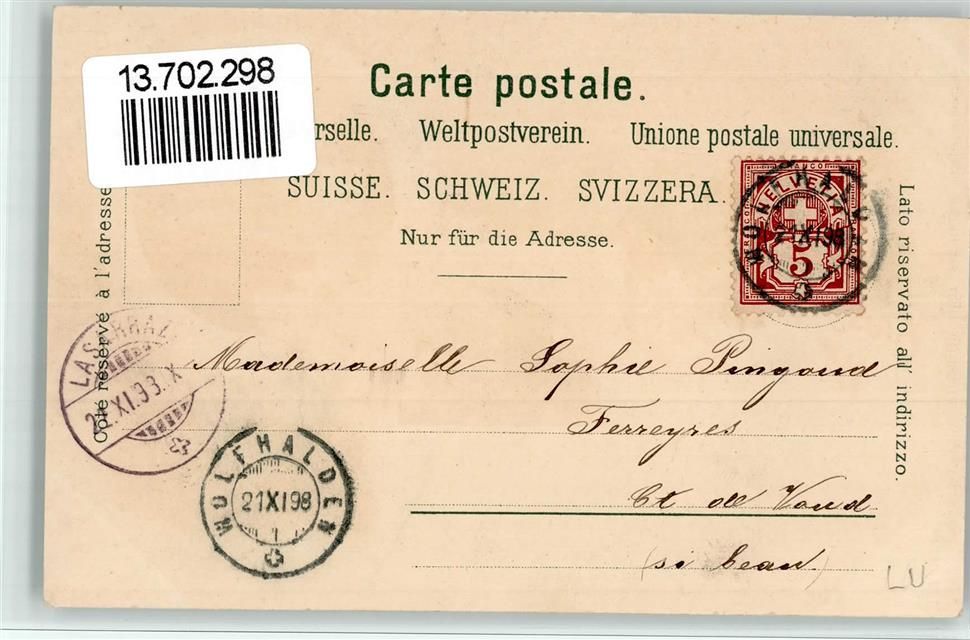 13.702.298
Carte postale.
rselle. Weltpostverein. Unione postale universale.
SUISSE. SCHWEIZ. SVIZZERA.
Nur für die Adresse.
Côté réservé à l'adresse
Lato riservato all' indirizzo.
FRANCO
HELVETIA
5
21 XI 98
LASARRAZ
XI.93.X
WOLFHALDEN
21 XI 98
Mademoiselle Sophie Pingoud
Ferreyres
Ct de Vaud
(si beau.)
LU